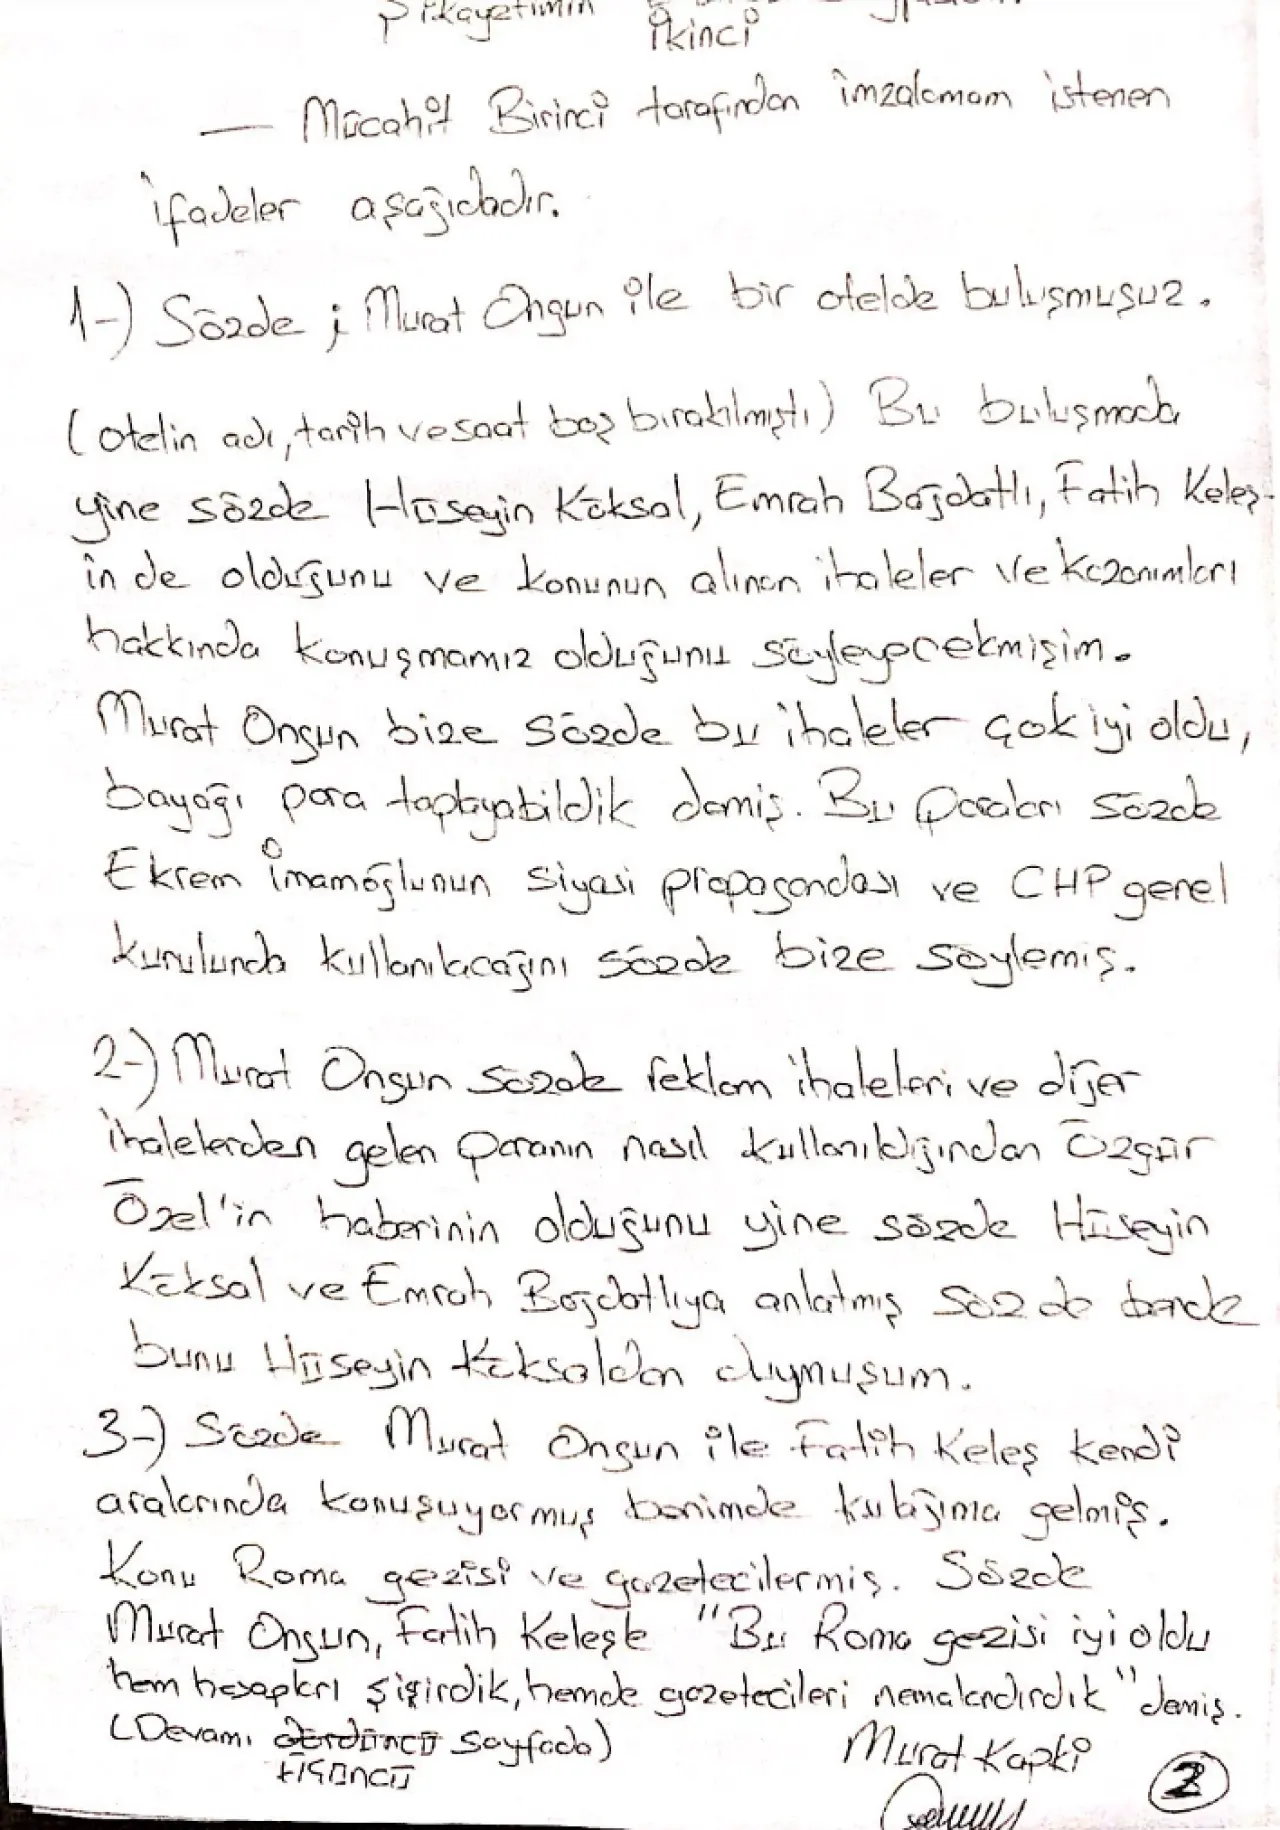 Şikayetimin
İkinci
— Mücahit Birinci tarafından imzalamam istenen
ifadeler aşağıdadır.
1-) Sözde ; Murat Ongun ile bir otelde buluşmuşuz.
(otelin adı, tarih ve saat boş bırakılmıştı) Bu buluşmada
yine sözde Hüseyin Köksal, Emrah Bağdatlı, Fatih Keleş-
in de olduğunu ve konunun alınan ihaleler ve kazanımları
hakkında konuşmamız olduğunu söyleyecekmişim.
Murat Ongun bize sözde bu ihaleler çok iyi oldu,
bayağı para toplayabildik demiş. Bu paraları sözde
Ekrem İmamoğlunun siyasi propagandası ve CHP genel
kurulunda kullanılacağını sözde bize söylemiş.
2-) Murat Ongun sözde reklam ihaleleri ve diğer
ihalelerden gelen paranın nasıl kullanıldığından Özgür
Özel'in haberinin olduğunu yine sözde Hüseyin
Köksal ve Emrah Bağdatlıya anlatmış sözde bende
bunu Hüseyin Köksaldan duymuşum.
3-) Sözde Murat Ongun ile Fatih Keleş kendi
aralarında konuşuyormuş benimde kulağıma gelmiş.
Konu Roma gezisi ve gazetecilermiş. Sözde
Murat Ongun, Fatih Keleşle "Bu Roma gezisi iyi oldu
hem hesapları şişirdik, hemde gazetecileri nemalandırdık" demiş.
(Devamı dördüncü sayfada) Murat Kapki
üçüncü
2